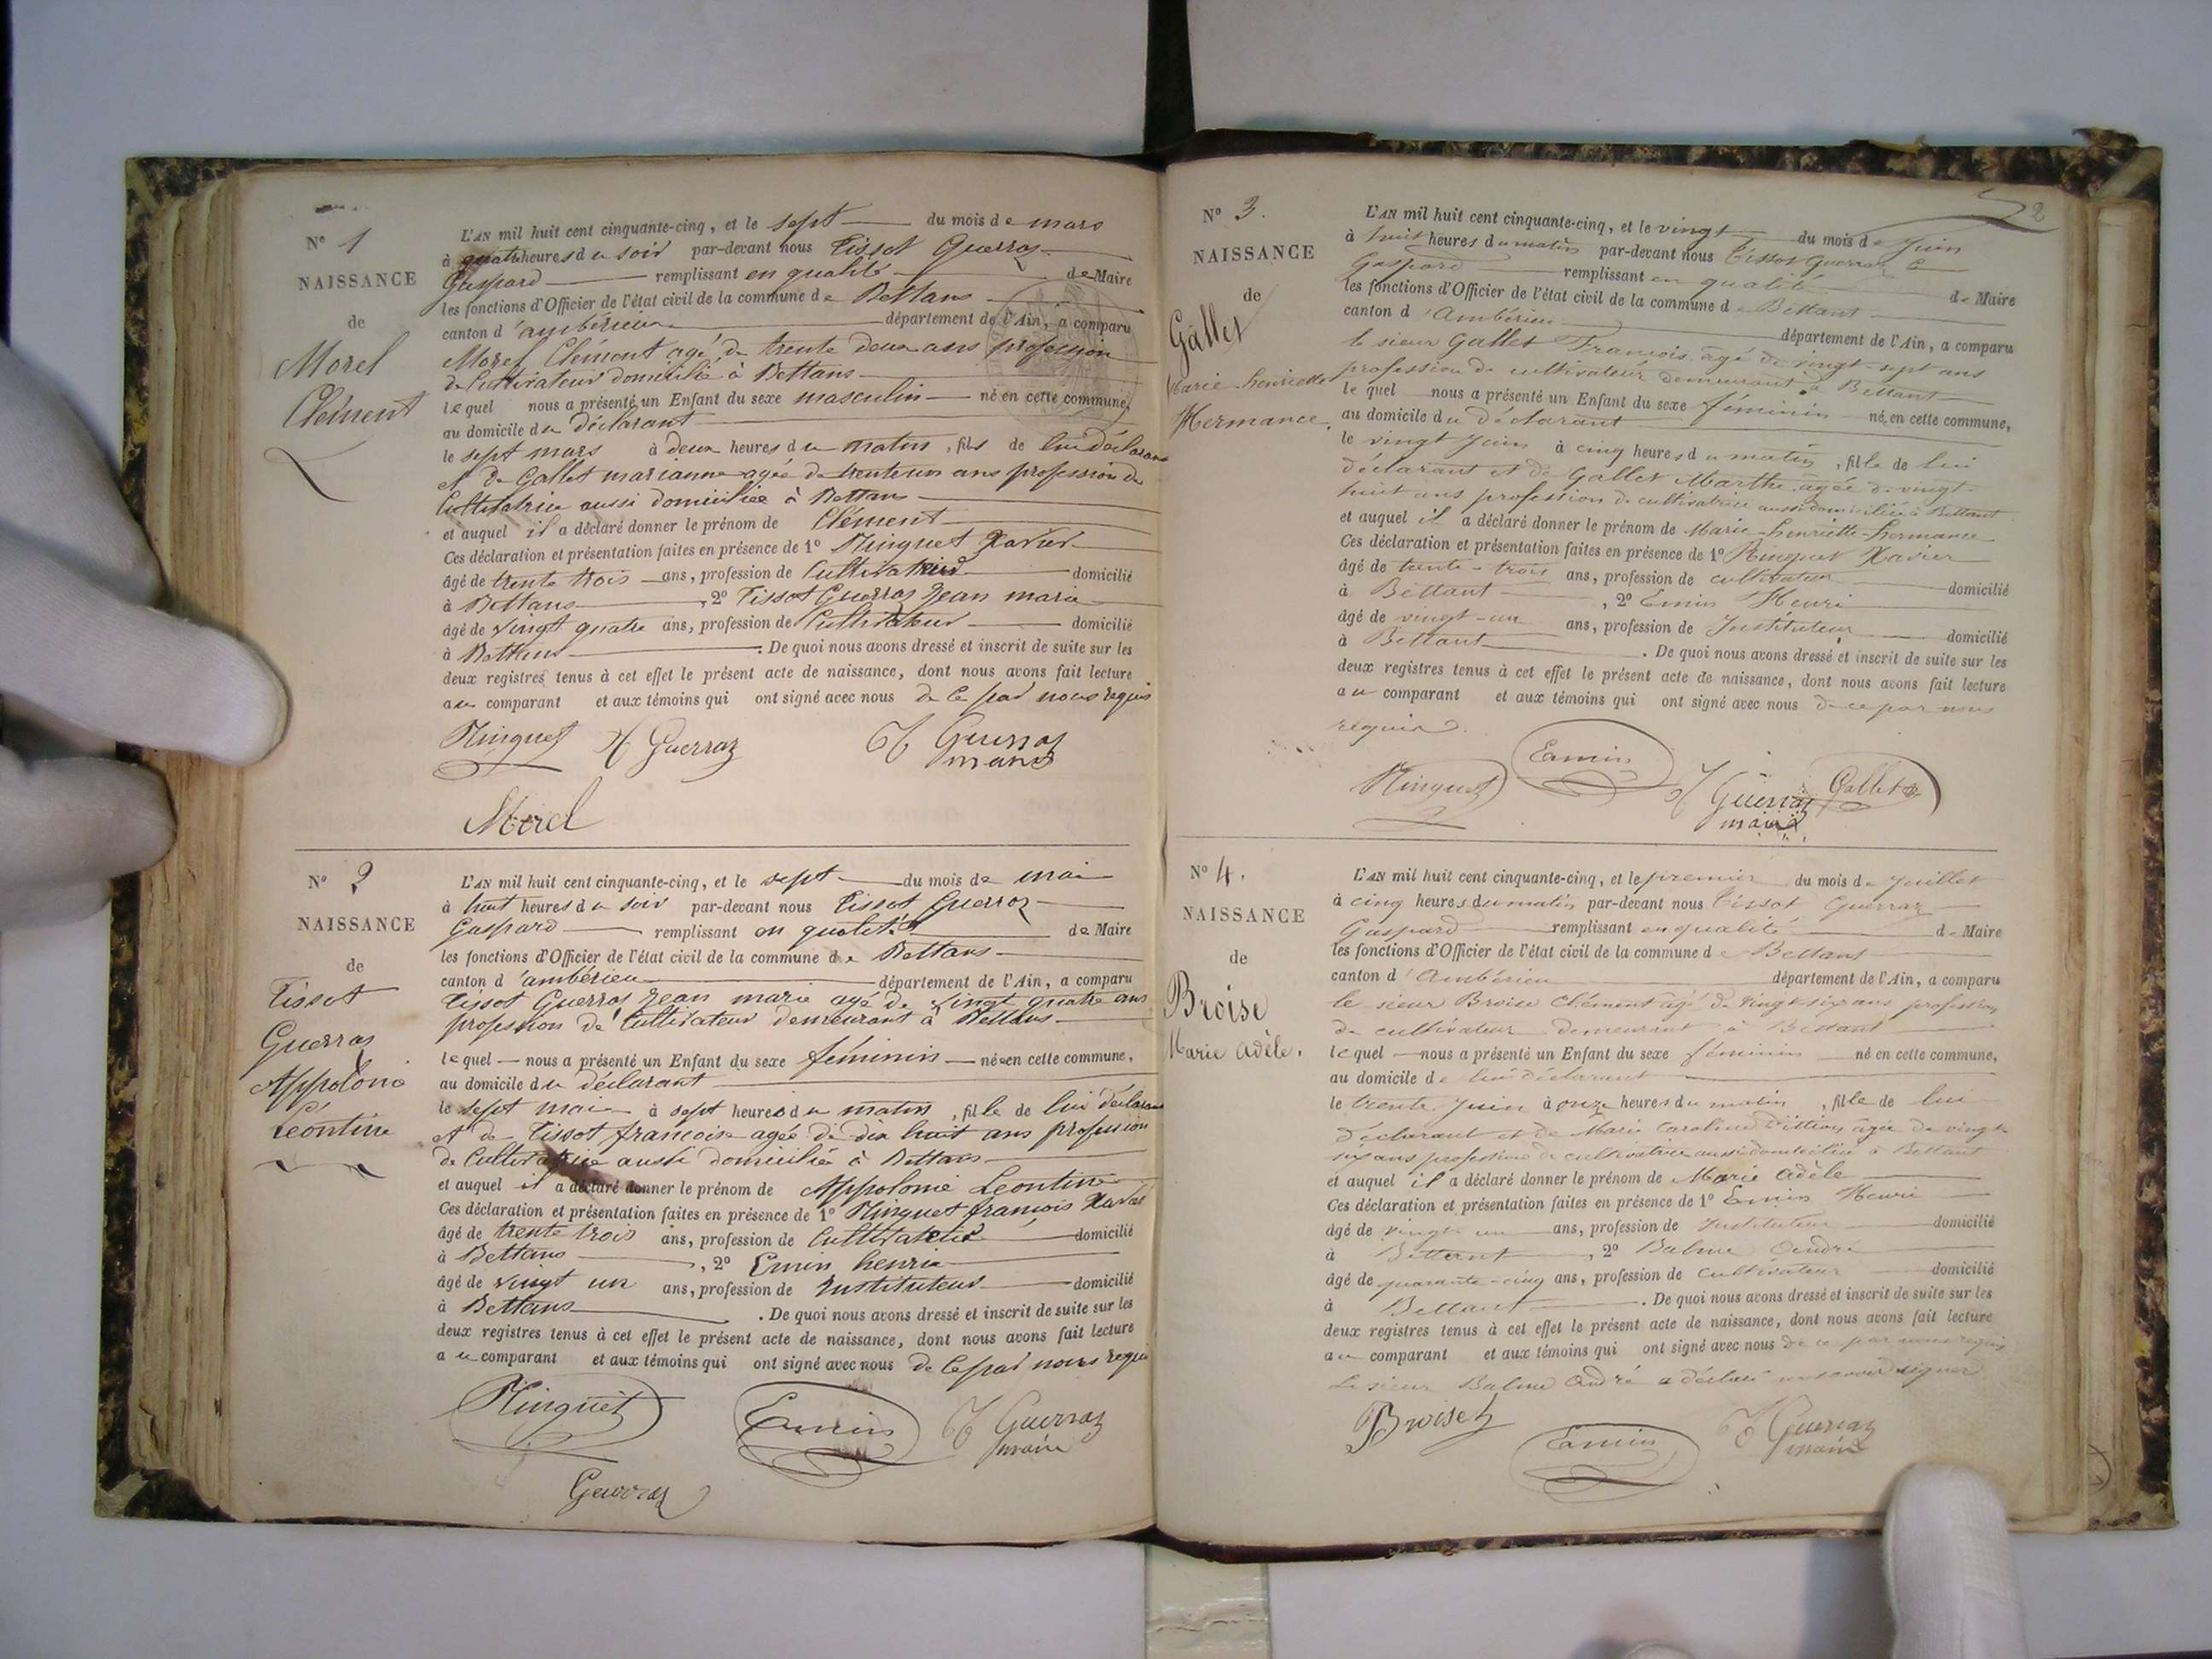 N° 1
NAISSANCE
de
Morel
Clément
L'AN mil huit cent cinquante-cinq, et le sept du mois de mars
à quatre heures du soir par-devant nous Tissot Guerraz
Gaspard remplissant en qualité de Maire
les fonctions d'Officier de l'état civil de la commune de Bettans
canton d'ambérieu département de l'Ain, a comparu
Morel Clément agé de trente deux ans profession
de Cultivateur domicilié à Bettans
lequel nous a présenté un Enfant du sexe masculin né en cette commune,
au domicile du déclarant
le sept mars à deux heures du matin, fils de lui déclarant
et de Gallet marianne agée de trente un ans profession de
Cultivatrice aussi domiciliée à Bettans
et auquel il a déclaré donner le prénom de Clément
Ces déclaration et présentation faites en présence de 1° Ninguet Xavier
âgé de trente trois ans, profession de Cultivateur domicilié
à Bettans, 2° Tissot Guerraz Jean marie
âgé de vingt quatre ans, profession de Cultivateur domicilié
à Bettans. De quoi nous avons dressé et inscrit de suite sur les
deux registres tenus à cet effet le présent acte de naissance, dont nous avons fait lecture
au comparant et aux témoins qui ont signé avec nous de ce par nous requis
Ninguet Guerraz Guerraz
maire
Morel
N° 2
NAISSANCE
de
Tissot
Guerraz
Appolonie
Léontine
L'AN mil huit cent cinquante-cinq, et le sept du mois de mai
à huit heures du soir par-devant nous Tissot Guerraz
Gaspard remplissant en qualité de Maire
les fonctions d'Officier de l'état civil de la commune de Bettans
canton d'ambérieu département de l'Ain, a comparu
Tissot Guerraz Jean marie agé de vingt quatre ans
profession de Cultivateur demeurant à Bettans
lequel nous a présenté un Enfant du sexe féminin née en cette commune,
au domicile du déclarant
le sept mai à sept heures du matin, fille de lui déclarant
et de Tissot francoise agée de dix huit ans profession
de Cultivatrice aussi domiciliée à Bettans
et auquel il a déclaré donner le prénom de Appolonie Leontine
Ces déclaration et présentation faites en présence de 1° Ninguet francois Xavier
âgé de trente trois ans, profession de Cultivateur domicilié
à Bettans, 2° Emin henri
âgé de vingt un ans, profession de Instituteur domicilié
à Bettans. De quoi nous avons dressé et inscrit de suite sur les
deux registres tenus à cet effet le présent acte de naissance, dont nous avons fait lecture
au comparant et aux témoins qui ont signé avec nous de ce par nous requis
Ninguet Emin Guerraz
maire
Guerraz
2
N° 3.
NAISSANCE
de
Gallet
Marie henriette
Hermance.
L'AN mil huit cent cinquante-cinq, et le vingt du mois de Juin
à huit heures du matin par-devant nous Tissot Guerraz
Gaspard remplissant en qualité de Maire
les fonctions d'Officier de l'état civil de la commune de Bettant
canton d'Ambérieu département de l'Ain, a comparu
le sieur Gallet Francois agé de vingt-sept ans
profession de cultivateur demeurant à Bettant
lequel nous a présenté un Enfant du sexe féminin né en cette commune,
au domicile du déclarant
le vingt Juin à cinq heures du matin, fille de lui
déclarant et de Gallet Marthe agée de vingt-
huit ans profession de cultivatrice aussi domiciliée à Bettant
et auquel il a déclaré donner le prénom de Marie-henriette-hermance
Ces déclaration et présentation faites en présence de 1° Ninguet Xavier
âgé de trente-trois ans, profession de cultivateur domicilié
à Bettant, 2° Emin Henri
âgé de vingt-un ans, profession de Instituteur domicilié
à Bettant. De quoi nous avons dressé et inscrit de suite sur les
deux registres tenus à cet effet le présent acte de naissance, dont nous avons fait lecture
au comparant et aux témoins qui ont signé avec nous de ce par nous
requis.
Ninguet Emin Guerraz Gallet
maire
N° 4.
NAISSANCE
de
Broise
Marie adèle.
L'AN mil huit cent cinquante-cinq, et le premier du mois de Juillet
à cinq heures du matin par-devant nous Tissot Guerraz
Gaspard remplissant en qualité de Maire
les fonctions d'Officier de l'état civil de la commune de Bettant
canton d'Ambérieu département de l'Ain, a comparu
le sieur Broise Clément agé de vingt-six ans profession
de cultivateur demeurant à Bettant
lequel nous a présenté un Enfant du sexe féminin né en cette commune,
au domicile de lui déclarant
le trente Juin à onze heures du matin, fille de lui
déclarant et de Marie Caroline agée de vingt-
six ans profession de cultivatrice aussi domiciliée à Bettant
et auquel il a déclaré donner le prénom de Marie Adèle
Ces déclaration et présentation faites en présence de 1° Emin Henri
âgé de vingt un ans, profession de Instituteur domicilié
à Bettant, 2° Balme André
âgé de quarante-cinq ans, profession de cultivateur domicilié
à Bettant. De quoi nous avons dressé et inscrit de suite sur les
deux registres tenus à cet effet le présent acte de naissance, dont nous avons fait lecture
au comparant et aux témoins qui ont signé avec nous de ce par nous requis
Le sieur Balme André a déclaré ne savoir signer
Broise Emin Guerraz
maire